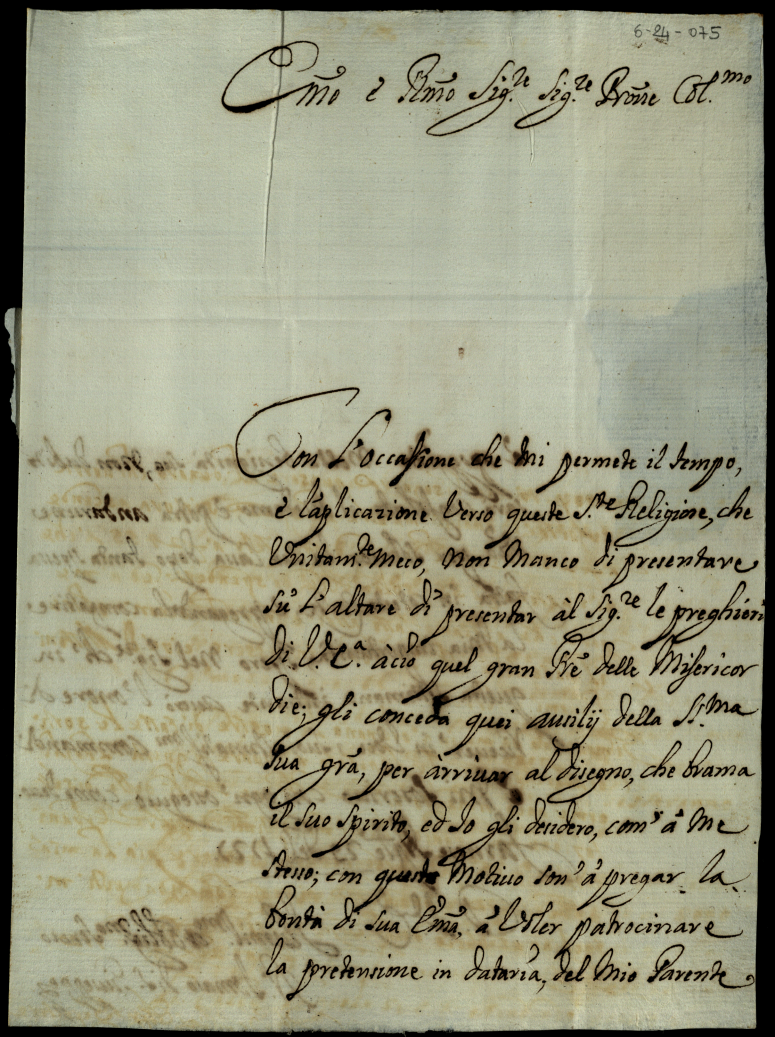 6-24-075
Em̃o è Rm̃o Sig.re Sig.re Prõne Col.mo
Con l'occasione che mi permete il tempo,
è l'aplicazione verso queste S.te Religiose, che
Unitam.te meco, non manco di presentare
sù l'altare dì presentar àl Sig.re le preghieri
di V.E.a àciò quel gran Pr̃e delle Misericor
die; gli conceda quei auxilij della SS.ma
sua grã, per àrrivar al disegno, che brama
il suo spirito, ed Io gli desidero, com'à me
stesso; con questo motivo son'à pregar la
bontà di sua Em̃a, à voler patrocinare
la pretensione in dataria, del mio Parente